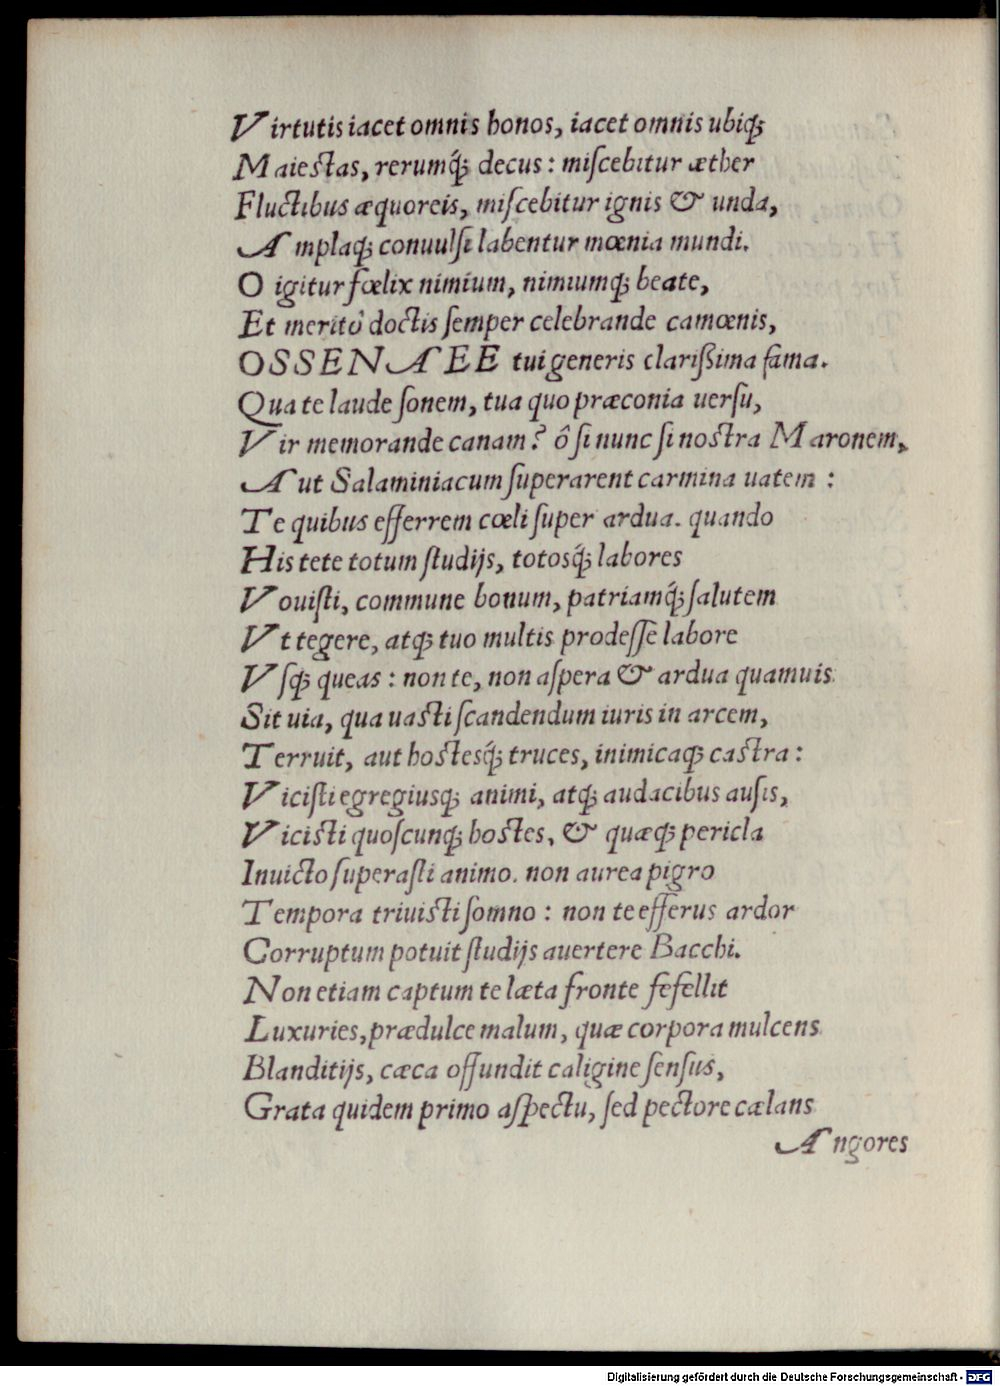 Virtutis iacet omnis honos, iacet omnis ubiq;
Maiestas, rerumq́; decus: miſcebitur æther
Fluctibus æquoreis, miſcebitur ignis & unda,
Amplaq; conuulſi labentur mœnia mundi.
O igitur fœlix nimium, nimiumq; beate,
Et meritò doctis ſemper celebrande camœnis,
OSSENAEE tui generis clarißima fama.
Qua te laude ſonem, tua quo præconia uerſu,
Vir memorande canam? ô ſi nunc ſi noſtra Maronem,
Aut Salaminiacum ſuperarent carmina uatem:
Te quibus efferrem cœli ſuper ardua. quando
His tete totum ſtudijs, totosq́; labores
Vouiſti, commune bonum, patriamq́; ſalutem
Vt tegere, atq; tuo multis prodeſſe labore
Vſq; queas: non te, non aſpera & ardua quamuis
Sit uia, qua uaſti ſcandendum iuris in arcem,
Terruit, aut hoſtesq́; truces, inimicaq; caſtra:
Viciſti egregiusq; animi, atq; audacibus auſis,
Viciſti quoſcunq; hoſtes, & quæq; pericla
Inuicto ſuperaſti animo. non aurea pigro
Tempora triuiſti ſomno: non te efferus ardor
Corruptum potuit ſtudijs auertere Bacchi.
Non etiam captum te læta fronte fefellit
Luxuries, prædulce malum, quæ corpora mulcens
Blanditijs, cæca offundit caligine ſenſus,
Grata quidem primo aſpectu, ſed pectore cælans
Angores
Digitalisierung gefördert durch die Deutsche Forschungsgemeinschaft - DFG